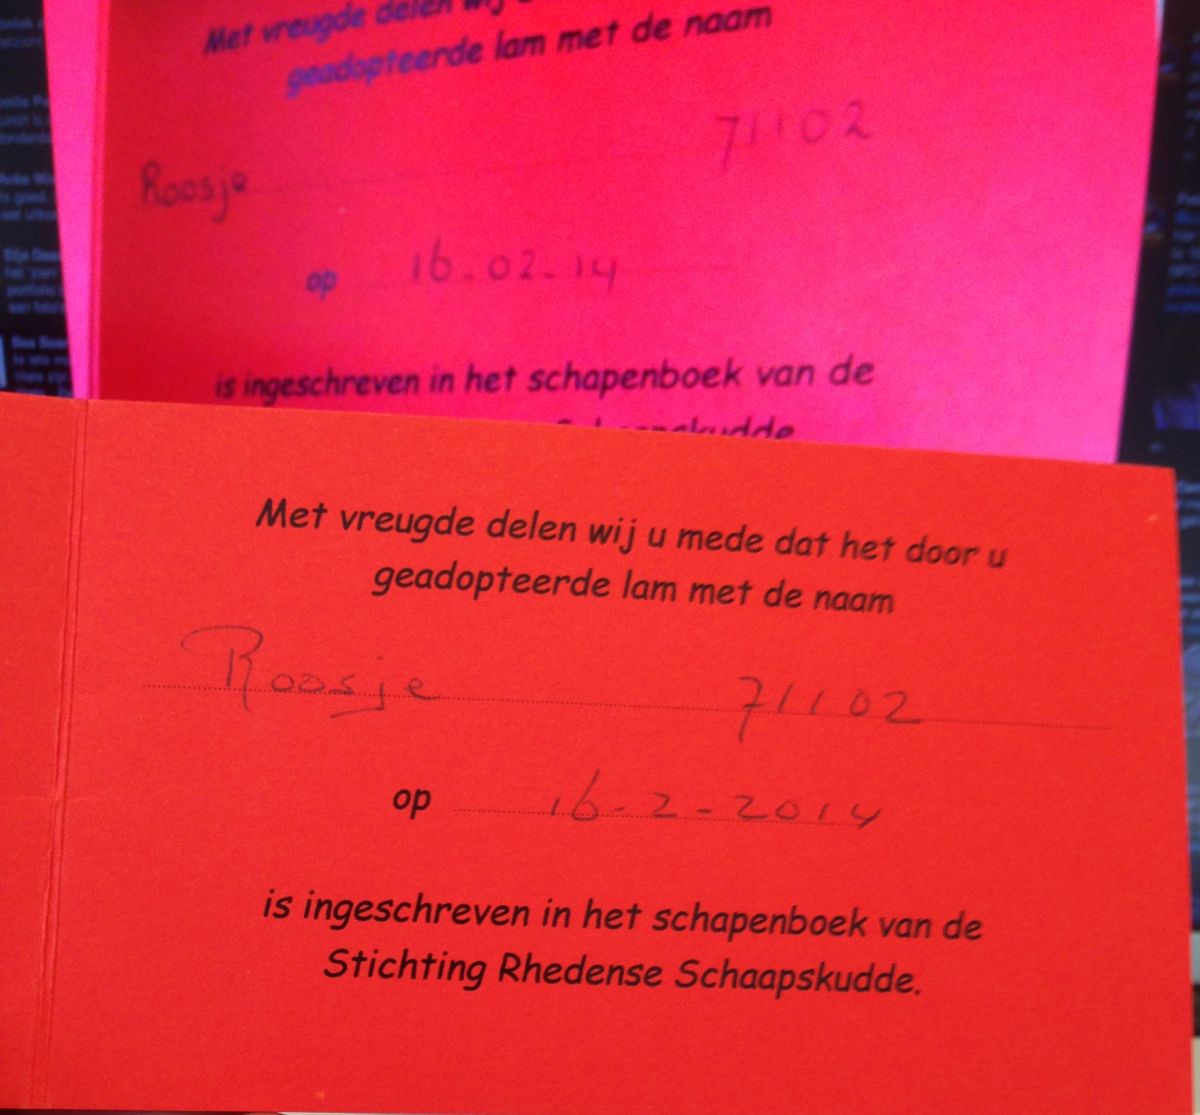 Met vreugde delen wij
geadopteerde lam met de naam
Roosje 71102
op 16-02-14
is ingeschreven in het schapenboek van de
Met vreugde delen wij u mede dat het door u
geadopteerde lam met de naam
Roosje 71102
op 16-2-2014
is ingeschreven in het schapenboek van de
Stichting Rhedense Schaapskudde.